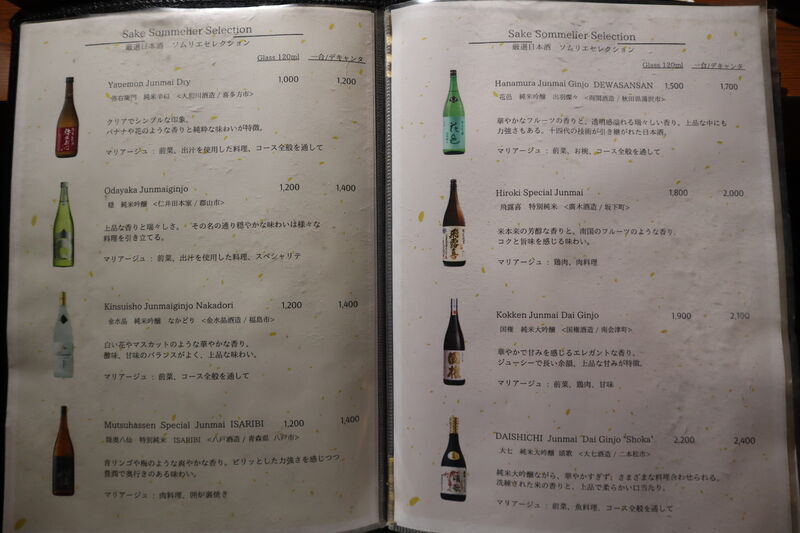 Sake Sommelier Selection
厳選日本酒 ソムリエセレクション
Glass 120ml 一合/デキャンタ
Yauemon Junmai Dry 1,000 1,200
弥右衛門 純米辛口 <大和川酒造 / 喜多方市>
クリアでシンプルな印象。
バナナや花のような香りと純粋な味わいが特徴。
マリアージュ : 前菜、出汁を使用した料理、コース全般を通して
Odayaka Junmaiginjo 1,200 1,400
穏 純米吟醸 <仁井田本家 / 郡山市>
上品な香りと瑞々しさ。 その名の通り穏やかな味わいは様々な
料理を引き立てる。
マリアージュ : 前菜、出汁を使用した料理、スペシャリテ
Kinsuisho Junmaiginjo Nakadori 1,200 1,400
金水晶 純米吟醸 なかどり <金水晶酒造 / 福島市>
白い花やマスカットのような華やかな香り。
酸味、甘味のバランスがよく、上品な味わい。
マリアージュ : 前菜、コース全般を通して
Mutsuhassen Special Junmai ISARIBI 1,200 1,400
陸奥八仙 特別純米 ISARIBI <八戸酒造 / 青森県 八戸市>
青リンゴや梅のような爽やかな香り。ピリッとした力強さを感じつつ
豊潤で奥行きのある味わい。
マリアージュ : 肉料理、囲炉裏焼き
Sake Sommelier Selection
厳選日本酒 ソムリエセレクション
Glass 120ml 一合/デキャンタ
Hanamura Junmai Ginjo DEWASANSAN 1,500 1,700
花邑 純米吟醸 出羽燦々 <両関酒造 / 秋田県湯沢市>
華やかなフルーツの香りと、透明感溢れる瑞々しい香り。上品な中にも
力強さもある。十四代の技術が引き継がれた日本酒。
マリアージュ : 前菜、お椀、コース全般を通して
Hiroki Special Junmai 1,800 2,000
飛露喜 特別純米 <廣木酒造 / 坂下町>
米本来の芳醇な香りと、南国のフルーツのような香り。
コクと旨味を感じる味わい。
マリアージュ : 鶏肉、肉料理
Kokken Junmai Dai Ginjo 1,900 2,100
国権 純米大吟醸 <国権酒造 / 南会津町>
華やかで甘みを感じるエレガントな香り。
ジューシーで長い余韻、上品な甘みが特徴。
マリアージュ : 前菜、鶏肉、甘味
DAISHICHI Junmai Dai Ginjo "Shoka" 2,200 2,400
大七 純米大吟醸 頌歌 <大七酒造 / 二本松市>
純米大吟醸ながら、華やかすぎず、さまざまな料理合わせられる。
洗練された米の香りと、上品で柔らかい口当たり。
マリアージュ : 前菜、魚料理、コース全般を通して